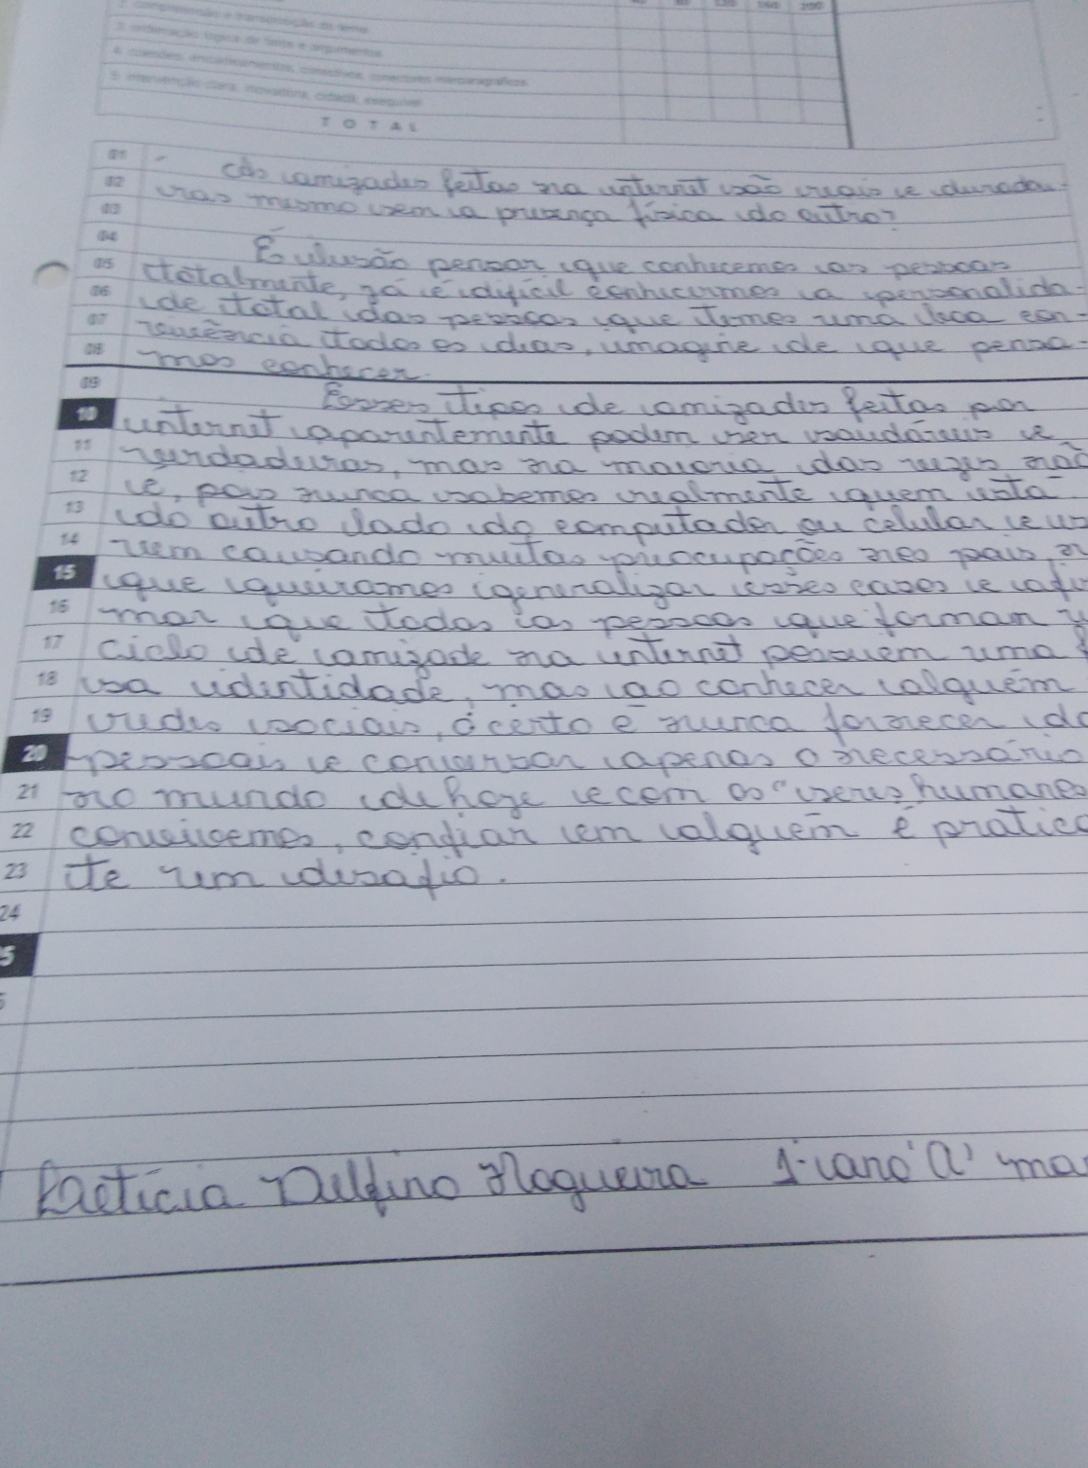 2. compreensão e transposição do tema
3. ordenação lógica de fatos e argumentos
5. intervenção clara, inovadora, cidadã, exequível
T O T A L
120 160 200
01 As amizades feitas na internet são reais e duradou-
02 ras mesmo sem a presença física do outro?
03
04 É ilusão pensar que conhecemos as pessoas
05 totalmente, já é difícil conhecermos a personalida-
06 de total das pessoas que temos uma boa con-
07 vivência todos os dias, imagine de que pensa-
08 mos conhecer.
09 Esses tipos de amizades feitas por
10 internet aparentemente podem ser saudáveis e
11 verdadeiras, mas na maioria das vezes não
12 é, pois nunca sabemos realmente quem está
13 do outro lado do computador ou celular e
14 vem causando muitas preocupações nos pais,
15 que queiramos generalizar esses casos e
16 mar que todas as pessoas que formam
17 ciclo de amizade na internet possuem uma
18 sa identidade, mas ao conhecer alguém
19 redes sociais, o certo é nunca fornecer
20 pessoais e conversar apenas o necessário
21 no mundo de hoje e com os "seres humanos
22 convivemos, confiar em alguém é pratica
23 te um desafio.
24
Laeticia Delfino Nogueira 1º ano 'A'